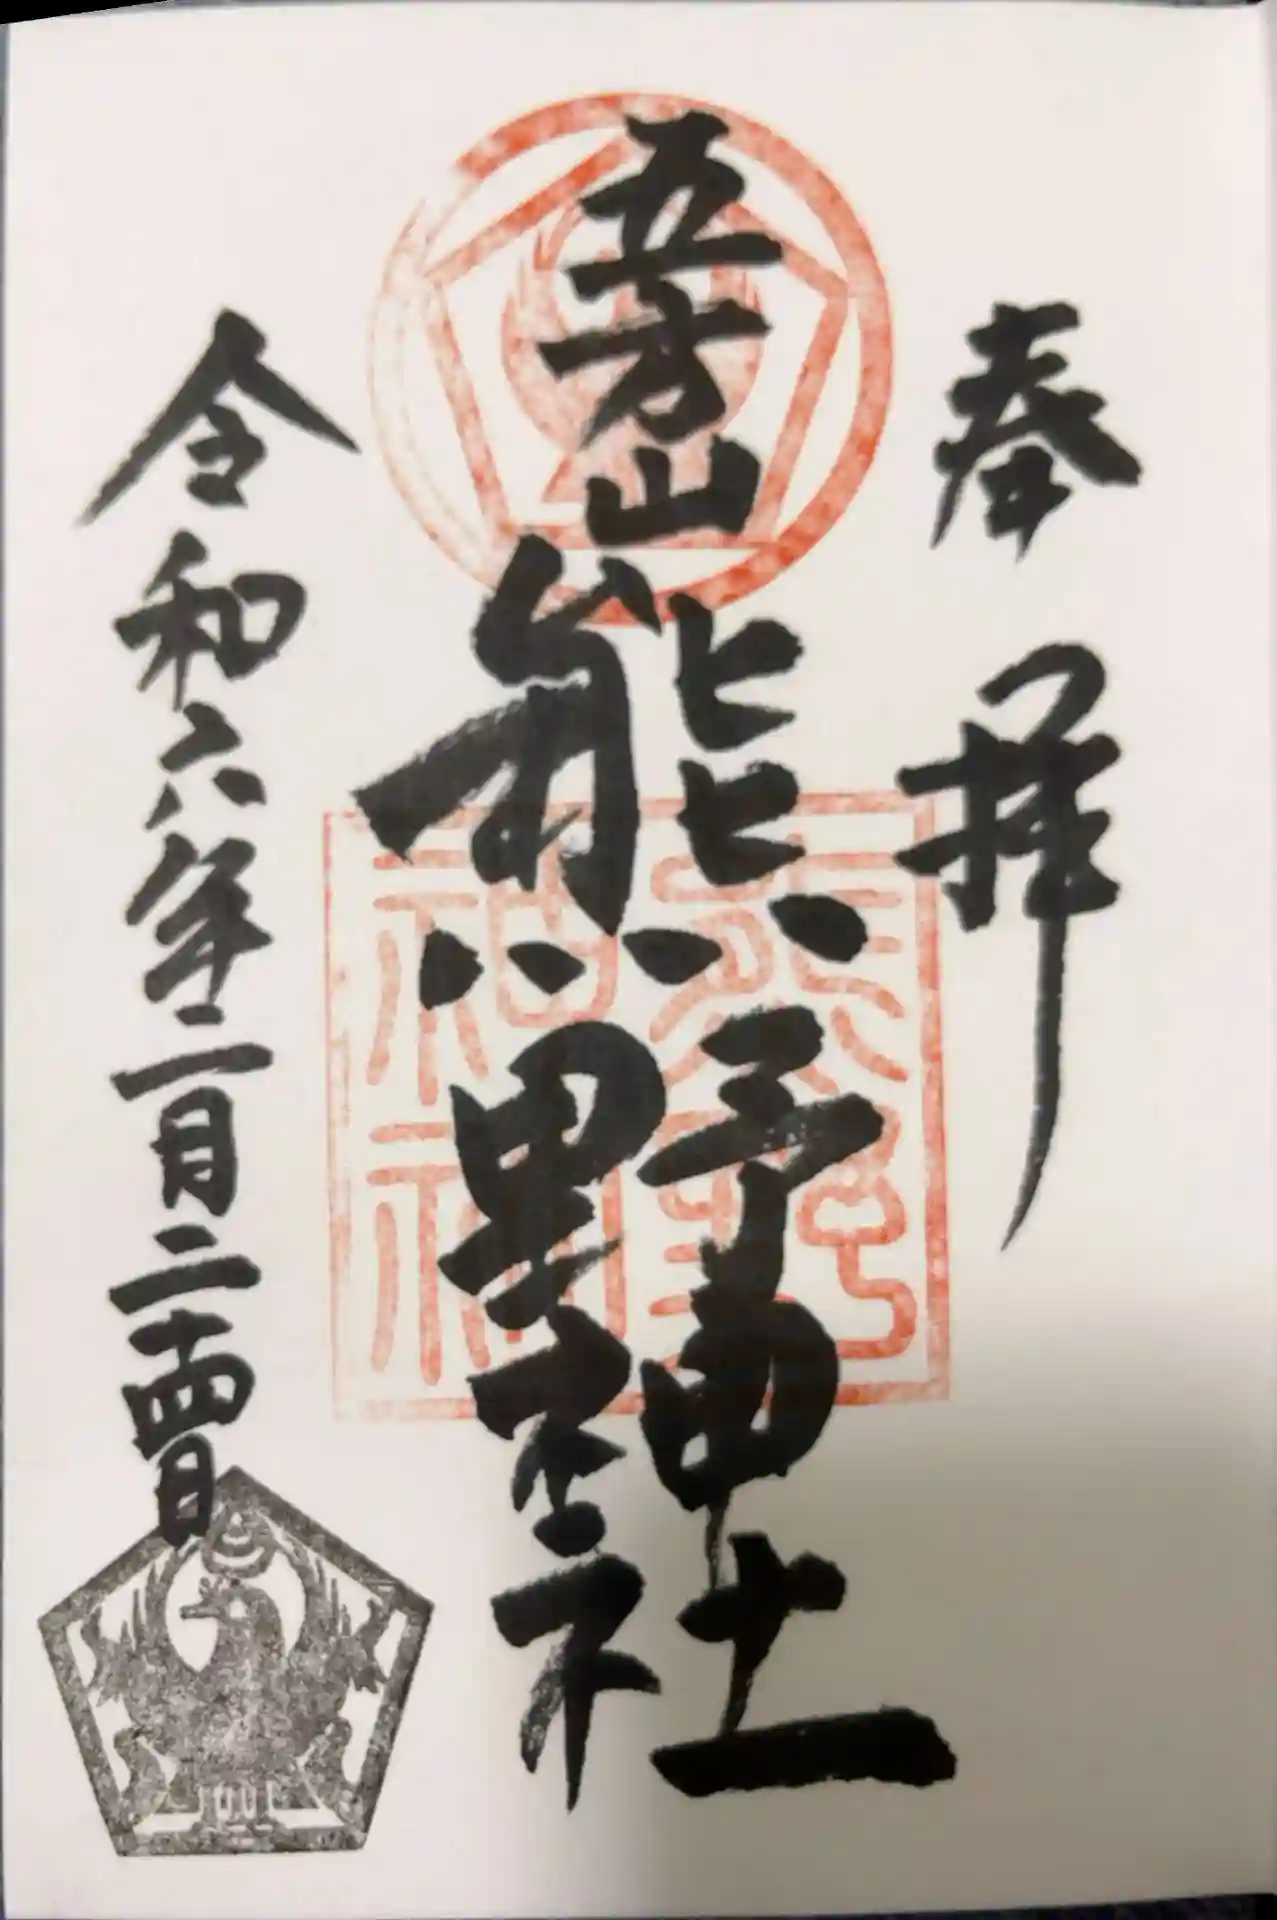 奉拝
五方山
熊野神社
令和六年二月二十四日
熊野
神社